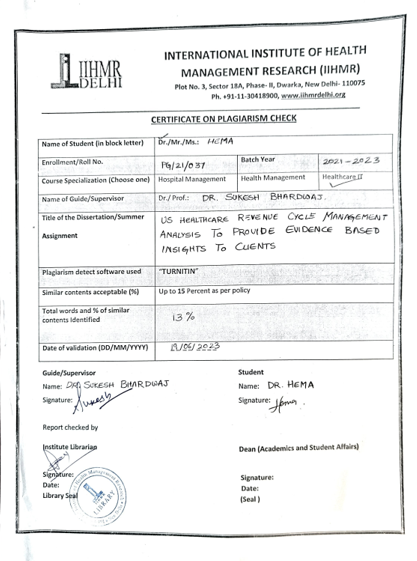 IIHMR
DELHI
INTERNATIONAL INSTITUTE OF HEALTH
MANAGEMENT RESEARCH (IIHMR)
Plot No. 3, Sector 18A, Phase- II, Dwarka, New Delhi- 110075
Ph. +91-11-30418900, www.iihmrdelhi.org
CERTIFICATE ON PLAGIARISM CHECK
Name of Student (in block letter) Dr./Mr./Ms.: HEMA
Enrollment/Roll No. PG/21/037 Batch Year 2021-2023
Course Specialization (Choose one) Hospital Management Health Management Healthcare IT
Name of Guide/Supervisor Dr./ Prof.: DR. SUKESH BHARDWAJ.
Title of the Dissertation/Summer
Assignment
US HEALTHCARE REVENUE CYCLE MANAGEMENT
ANALYSIS TO PROVIDE EVIDENCE BASED
INSIGHTS TO CLIENTS
Plagiarism detect software used "TURNITIN"
Similar contents acceptable (%) Up to 15 Percent as per policy
Total words and % of similar
contents Identified
13 %
Date of validation (DD/MM/YYYY) /06/2023
Guide/Supervisor
Name: DR SUKESH BHARDWAJ
Signature: Sukesh
Student
Name: DR. HEMA
Signature: Hema
Report checked by
Institute Librarian
Signature:
Date:
Library Seal
LIBRARY
Dean (Academics and Student Affairs)
Signature:
Date:
(Seal )